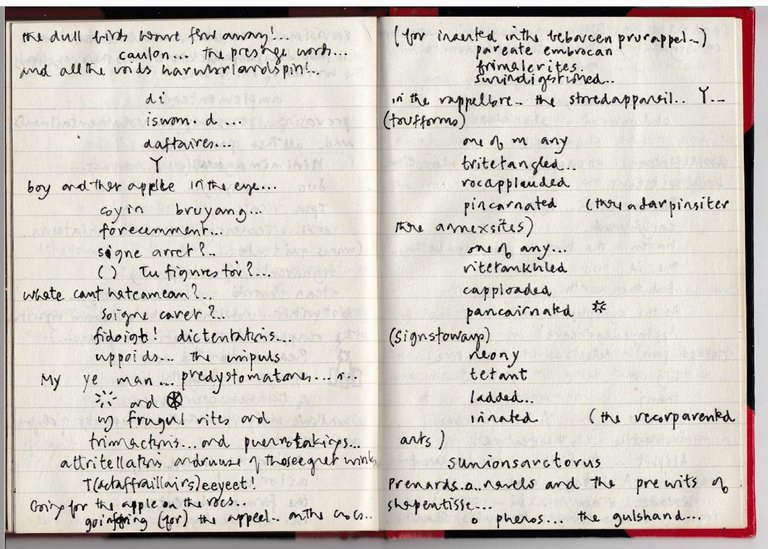 the dull birds have flew away!...
caulon... the presage words...
and all the voids harumbrlandspin!..
di
iswom. d ...
daftaires...
Y
boy and ther applee in the eye...
coyin bruyang...
forecemment...
signe arret?..
( ) Tu figures toi?...
whate cant hatcamean?...
soigne caret?...
fidoigt! dictentations...
uppoids... the unipuls
My ye man ... predystomatanes...
and
frugul rites and
trimactions... and puenstakings...
attritellations
T(actaffraillairs)eeyeet!
Going for the apple on the rocs...
(for) the appeel.. on the crocs..
(for inserted in the beborcen prurappel...)
pareate embrocan
frimalerites..
surindigestioned...
in the rappellore.. the storedappareil.. Y...
(toufforms)
one of m any
tritetangled...
rocapplauded
pincarnated (there adarpinsiter
there annexsites)
one of any...
vitetankhled
capploaded
pancairnated
(signstoways)
neony
tetant
ladded...
innated (the recorparented
ants)
sunionsarctorus
Prenards.. navels and the prewits of
shapentisse...
o phenos... the gulshand...